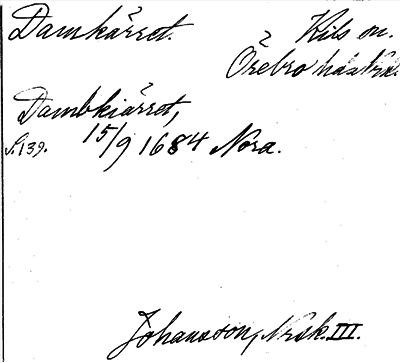 Damkärret. Kils sn.
Örebro hästra.
Dambkiärret,
s. 139. 15/9 1684 Nora.
Johansson, Nrsk. III.